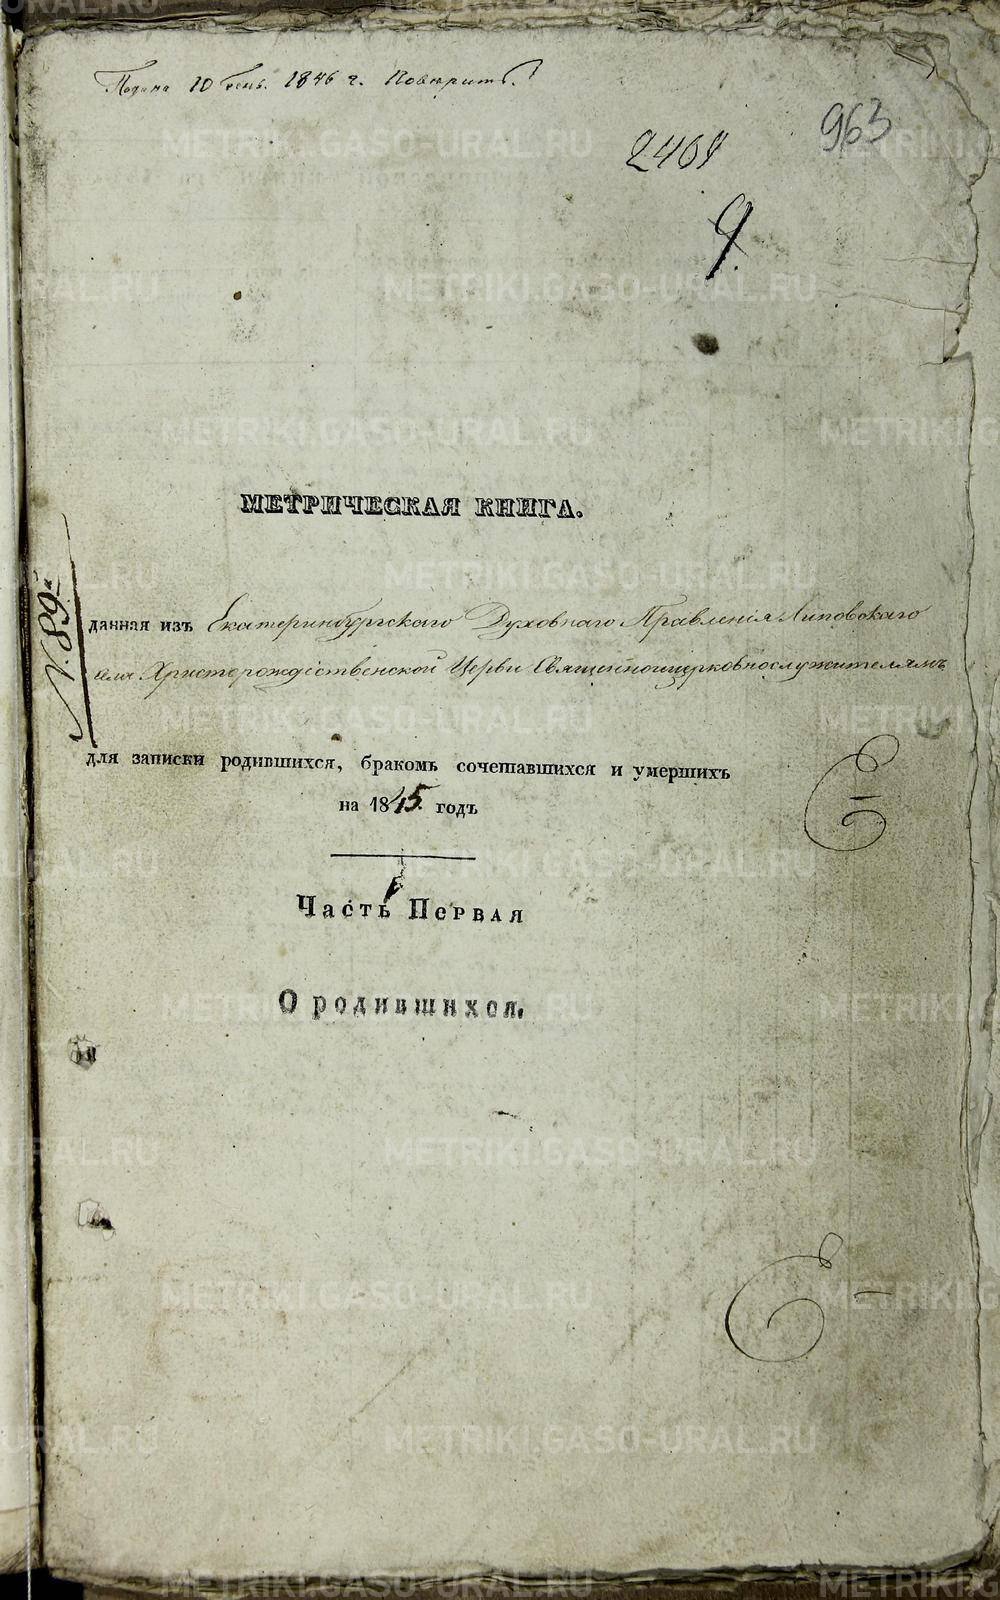 Подана 10 Генв. 1846 г. Поверить.
963
2461
9.
МЕТРИЧЕСКАЯ КНИГА.
N. 89й
данная изъ Екатеринбургскаго Духовнаго Правленія Липовскаго
села Христорождественской Церкви Священноицерковнослужителямъ
для записки родившихся, бракомъ сочетавшихся и умершихъ
на 1845 годъ
Часть Первая
О родившихся.
METRIKI.GASO-URAL.RU